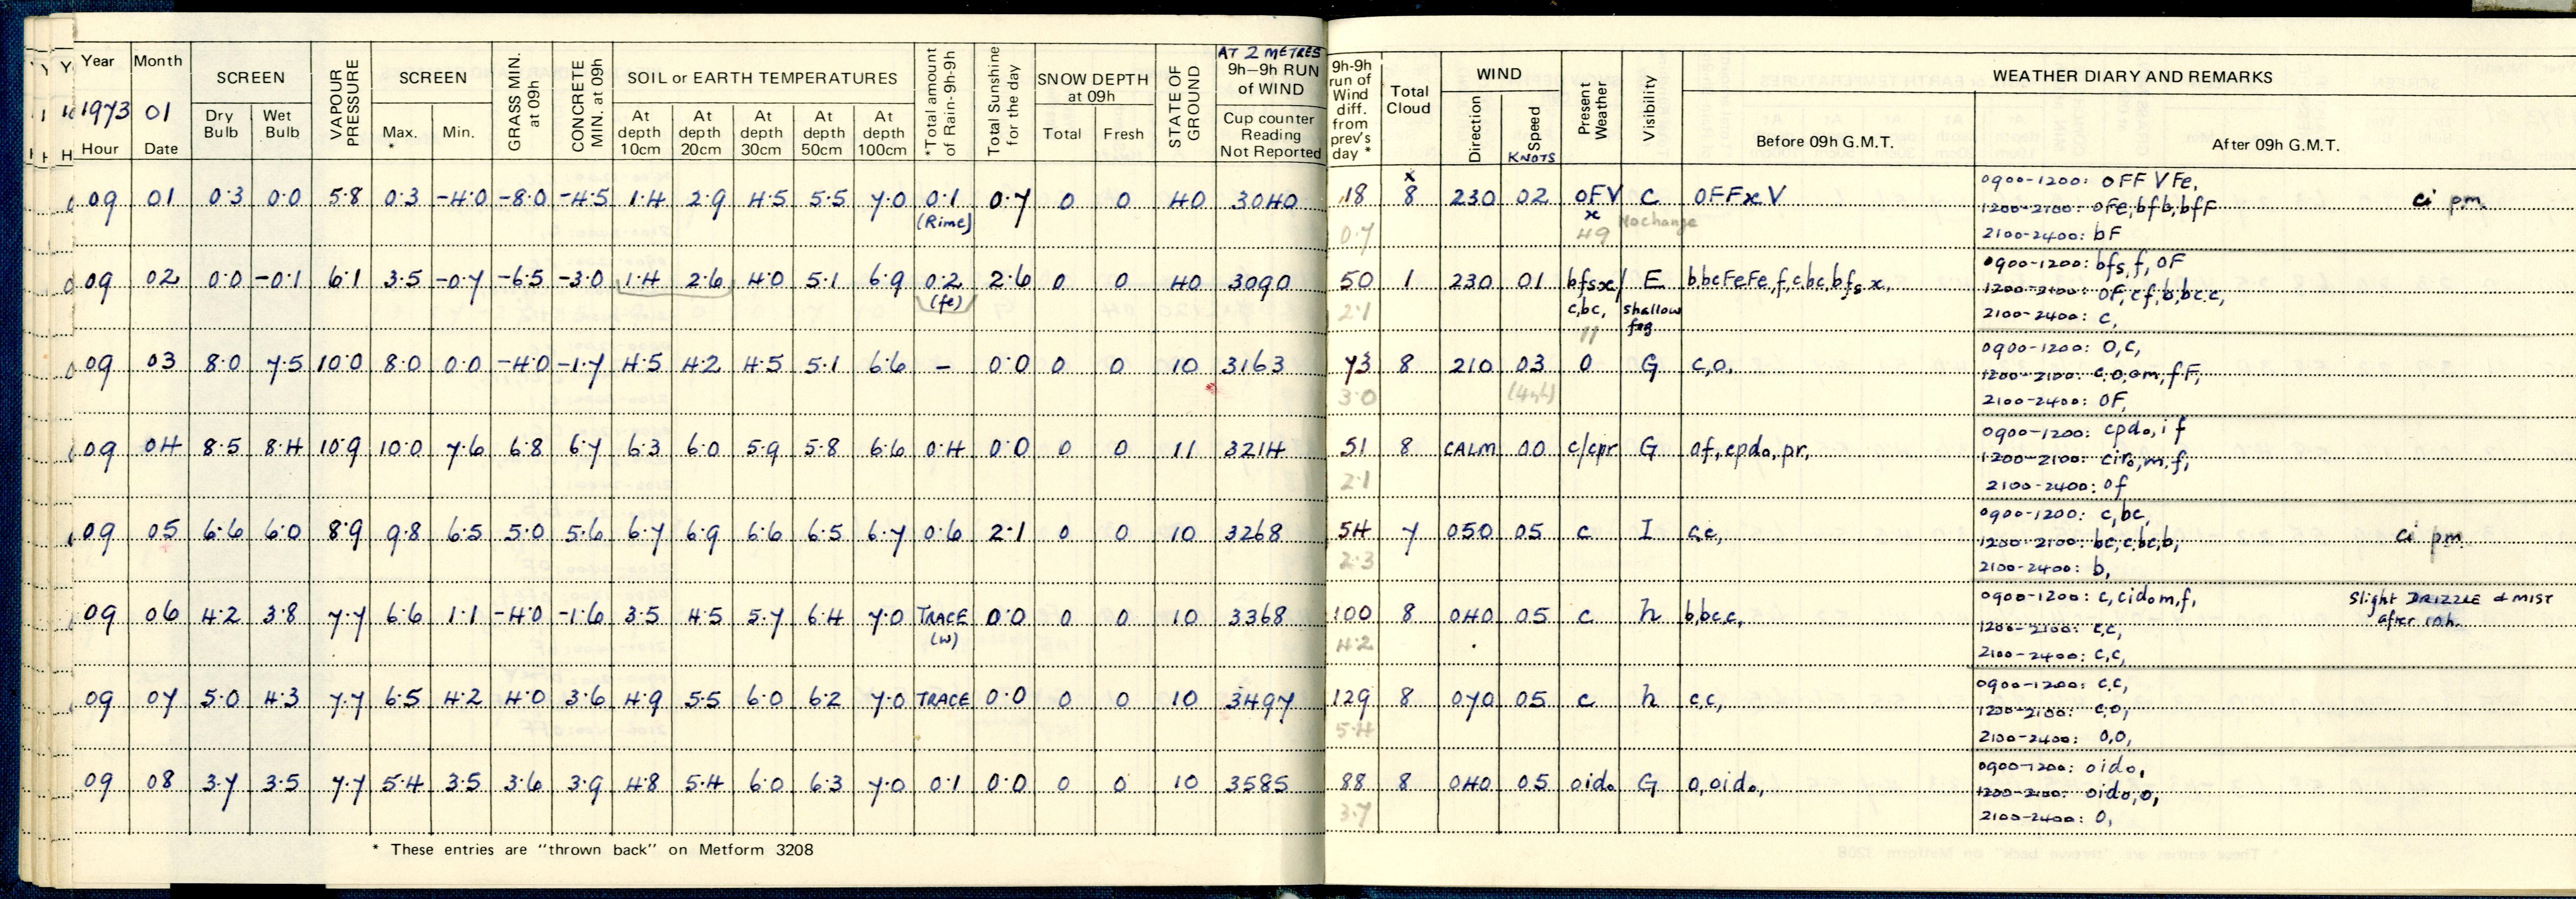 Year Month SCREEN VAPOUR PRESSURE SCREEN GRASS MIN. at 09h CONCRETE MIN. at 09h SOIL or EARTH TEMPERATURES *Total amount of Rain-9h-9h Total Sunshine for the day SNOW DEPTH at 09h STATE OF GROUND AT 2 METRES 9h-9h RUN of WIND
1973 01 Dry Bulb Wet Bulb Max. * Min. At depth 10cm At depth 20cm At depth 30cm At depth 50cm At depth 100cm Total Fresh Cup counter Reading Not Reported
Hour Date
09 01 0·3 0·0 5·8 0·3 -4·0 -8·0 -4·5 1·4 2·9 4·5 5·5 7·0 0·1 0·7 0 0 40 3040
(Rime)
09 02 0·0 -0·1 6·1 3·5 -0·7 -6·5 -3·0 1·4 2·6 4·0 5·1 6·9 0·2 2·6 0 0 40 3090
(fe)
09 03 8·0 7·5 10·0 8·0 0·0 -4·0 -1·7 4·5 4·2 4·5 5·1 6·6 - 0·0 0 0 10 3163
09 04 8·5 8·4 10·9 10·0 7·6 6·8 6·7 6·3 6·0 5·9 5·8 6·6 0·4 0·0 0 0 11 3214
09 05 6·6 6·0 8·9 9·8 6·5 5·0 5·6 6·7 6·9 6·6 6·5 6·7 0·6 2·1 0 0 10 3268
09 06 4·2 3·8 7·7 6·6 1·1 -4·0 -1·6 3·5 4·5 5·7 6·4 7·0 TRACE 0·0 0 0 10 3368
(w)
09 07 5·0 4·3 7·7 6·5 4·2 4·0 3·6 4·9 5·5 6·0 6·2 7·0 TRACE 0·0 0 0 10 3497
09 08 3·7 3·5 7·7 5·4 3·5 3·6 3·9 4·8 5·4 6·0 6·3 7·0 0·1 0·0 0 0 10 3585
* These entries are "thrown back" on Metform 3208
9h-9h run of Wind diff. from prev's day * Total Cloud WIND Present Weather Visibility WEATHER DIARY AND REMARKS
Direction Speed KNOTS Before 09h G.M.T. After 09h G.M.T.
x 0900-1200: OFF VFe,
18 8 230 02 OFV C OFFxV 1200-2100: OFe, bfb, bfF ci pm.
x No change
0·7 49 2100-2400: bF
0900-1200: bfs, f, OF
50 1 230 01 bfsx/ E bbcFeFe, f, c, bc, bfs x, 1200-2100: OF, cf, b, bc c,
2·1 c, bc, shallow fog 2100-2400: c,
11
0900-1200: O, c,
73 8 210 03 O G c, o, 1200-2100: c, o, om, f F,
3·0 2100-2400: OF,
0900-1200: cpdo, if
51 8 CALM 00 c/cpr G of, cpdo, pr, 1200-2100: ciro, m, f,
2·1 2100-2400: of
0900-1200: c, bc,
54 7 050 05 c I c, c, 1200-2100: bc, c, bc, b, ci pm
2·3 2100-2400: b,
0900-1200: c, cidom, f, Slight DRIZZLE & MIST
100 8 040 05 c h b, bc c, 1200-2100: c, c, after 10h.
4·2 2100-2400: c, c,
0900-1200: c, c,
129 8 070 05 c h c, c, 1200-2100: c, o,
5·4 2100-2400: o, o,
0900-1200: oido,
88 8 040 05 oido G o, oido, 1200-2100: oido, o,
3·7 2100-2400: o,